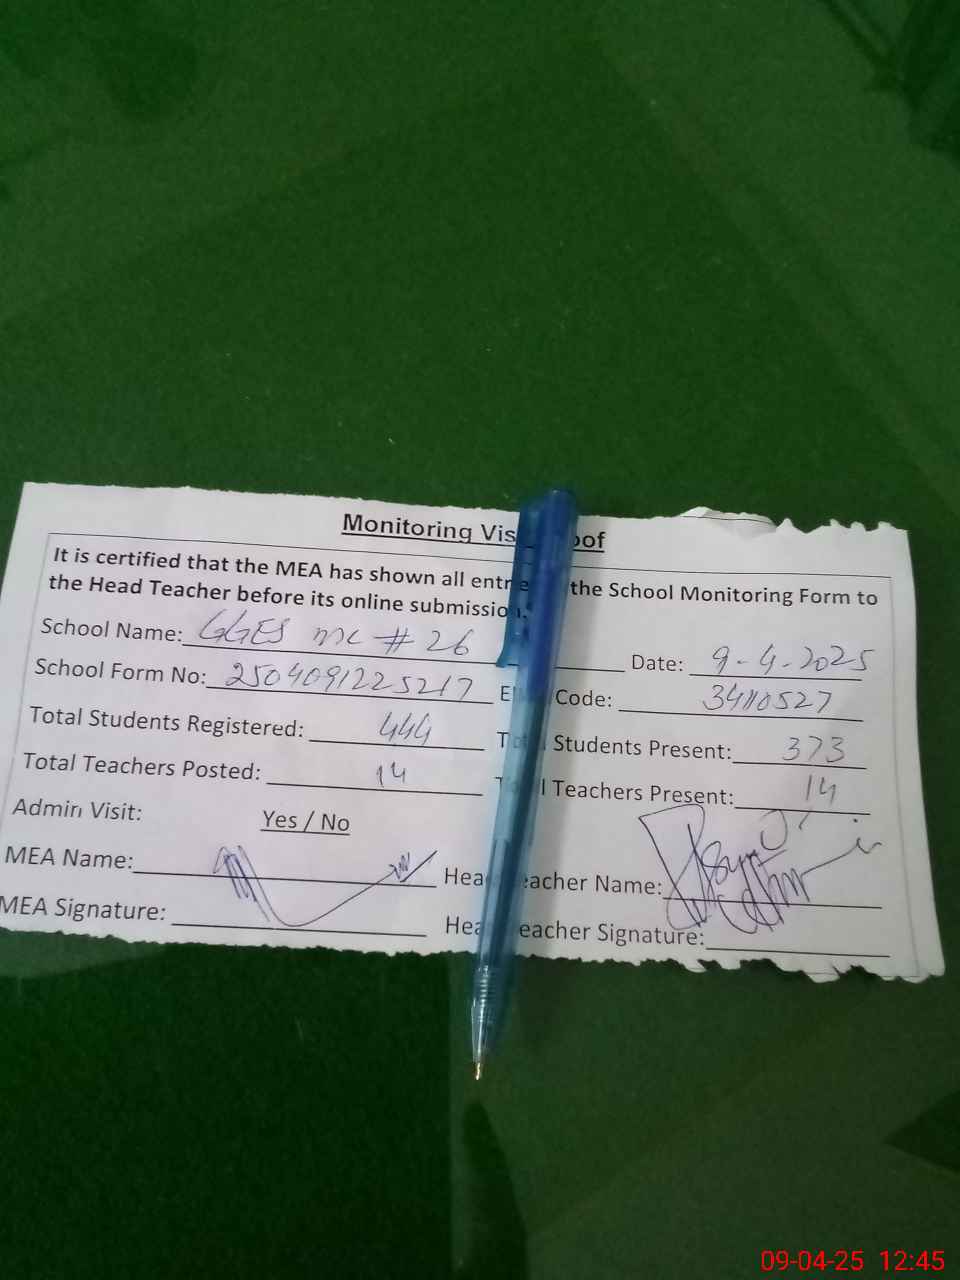 Monitoring Vis oof
It is certified that the MEA has shown all entr the School Monitoring Form to
the Head Teacher before its online submission.
School Name: GGES MC # 26 Date: 9-4-2025
School Form No: 2504091225217 E Code: 34110527
Total Students Registered: 444 Total Students Present: 373
Total Teachers Posted: 14 Total Teachers Present: 14
Admin Visit: Yes / No
MEA Name: Head Teacher Name:
MEA Signature: Head Teacher Signature:
09-04-25 12:45